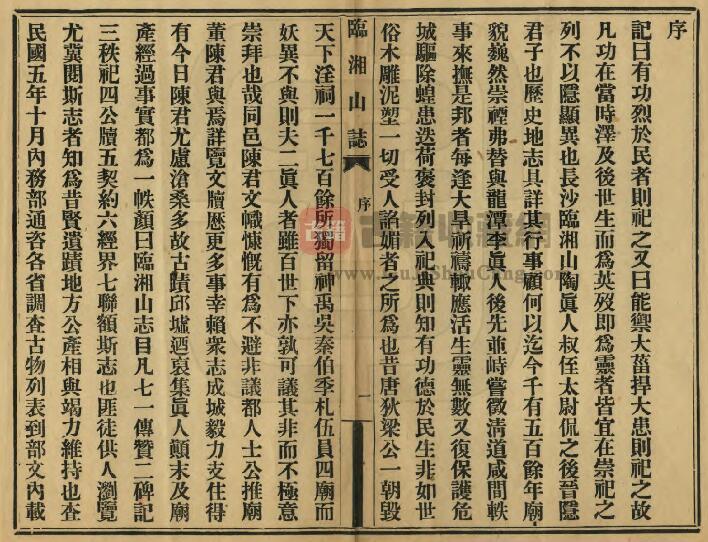 序
記曰有功烈於民者則祀之又曰能禦大菑捍大患則祀之故
凡功在當時澤及後世生而為英歿即為靈者皆宜在崇祀之
列不以隱顯異也長沙臨湘山陶眞人叔侄太尉侃之後晉隱
君子也歷史地志具詳其行事顧何以迄今千有五百餘年廟
貌巍然崇禋弗替與龍潭李眞人後先並峙嘗徵淸道咸間軼
事來撫是邦者每逢大旱祈禱輙應活生靈無數又復保護危
城驅除蝗患迭荷褒封列入祀典則知有功德於民生非如世
俗木雕泥塑一切受人諂媚者之所為也昔唐狄梁公一朝毀
臨湘山誌 序 一
天下淫祠一千七百餘所獨留神禹吳泰伯季札伍員四廟而
妖異不與則夫二眞人者雖百世下亦孰可議其非而不極意
崇拜也哉同邑陳君文幟慷慨有為不避非議都人士公推廟
董陳君與焉詳覽文牘歷更多事幸賴衆志成城毅力支住得
有今日陳君尤慮滄桑多故古蹟邱墟迺裒集眞人顚末及廟
產經過事實都為一帙顏曰臨湘山志目凡七一傳贊二碑記
三秩祀四公牘五契約六經界七聯額斯志也匪徒供人瀏覽
尤冀閱斯志者知為昔賢遺蹟地方公產相與竭力維持也查
民國五年十月內務部通咨各省調查古物列表到部文內載
古籍
古籍收藏網